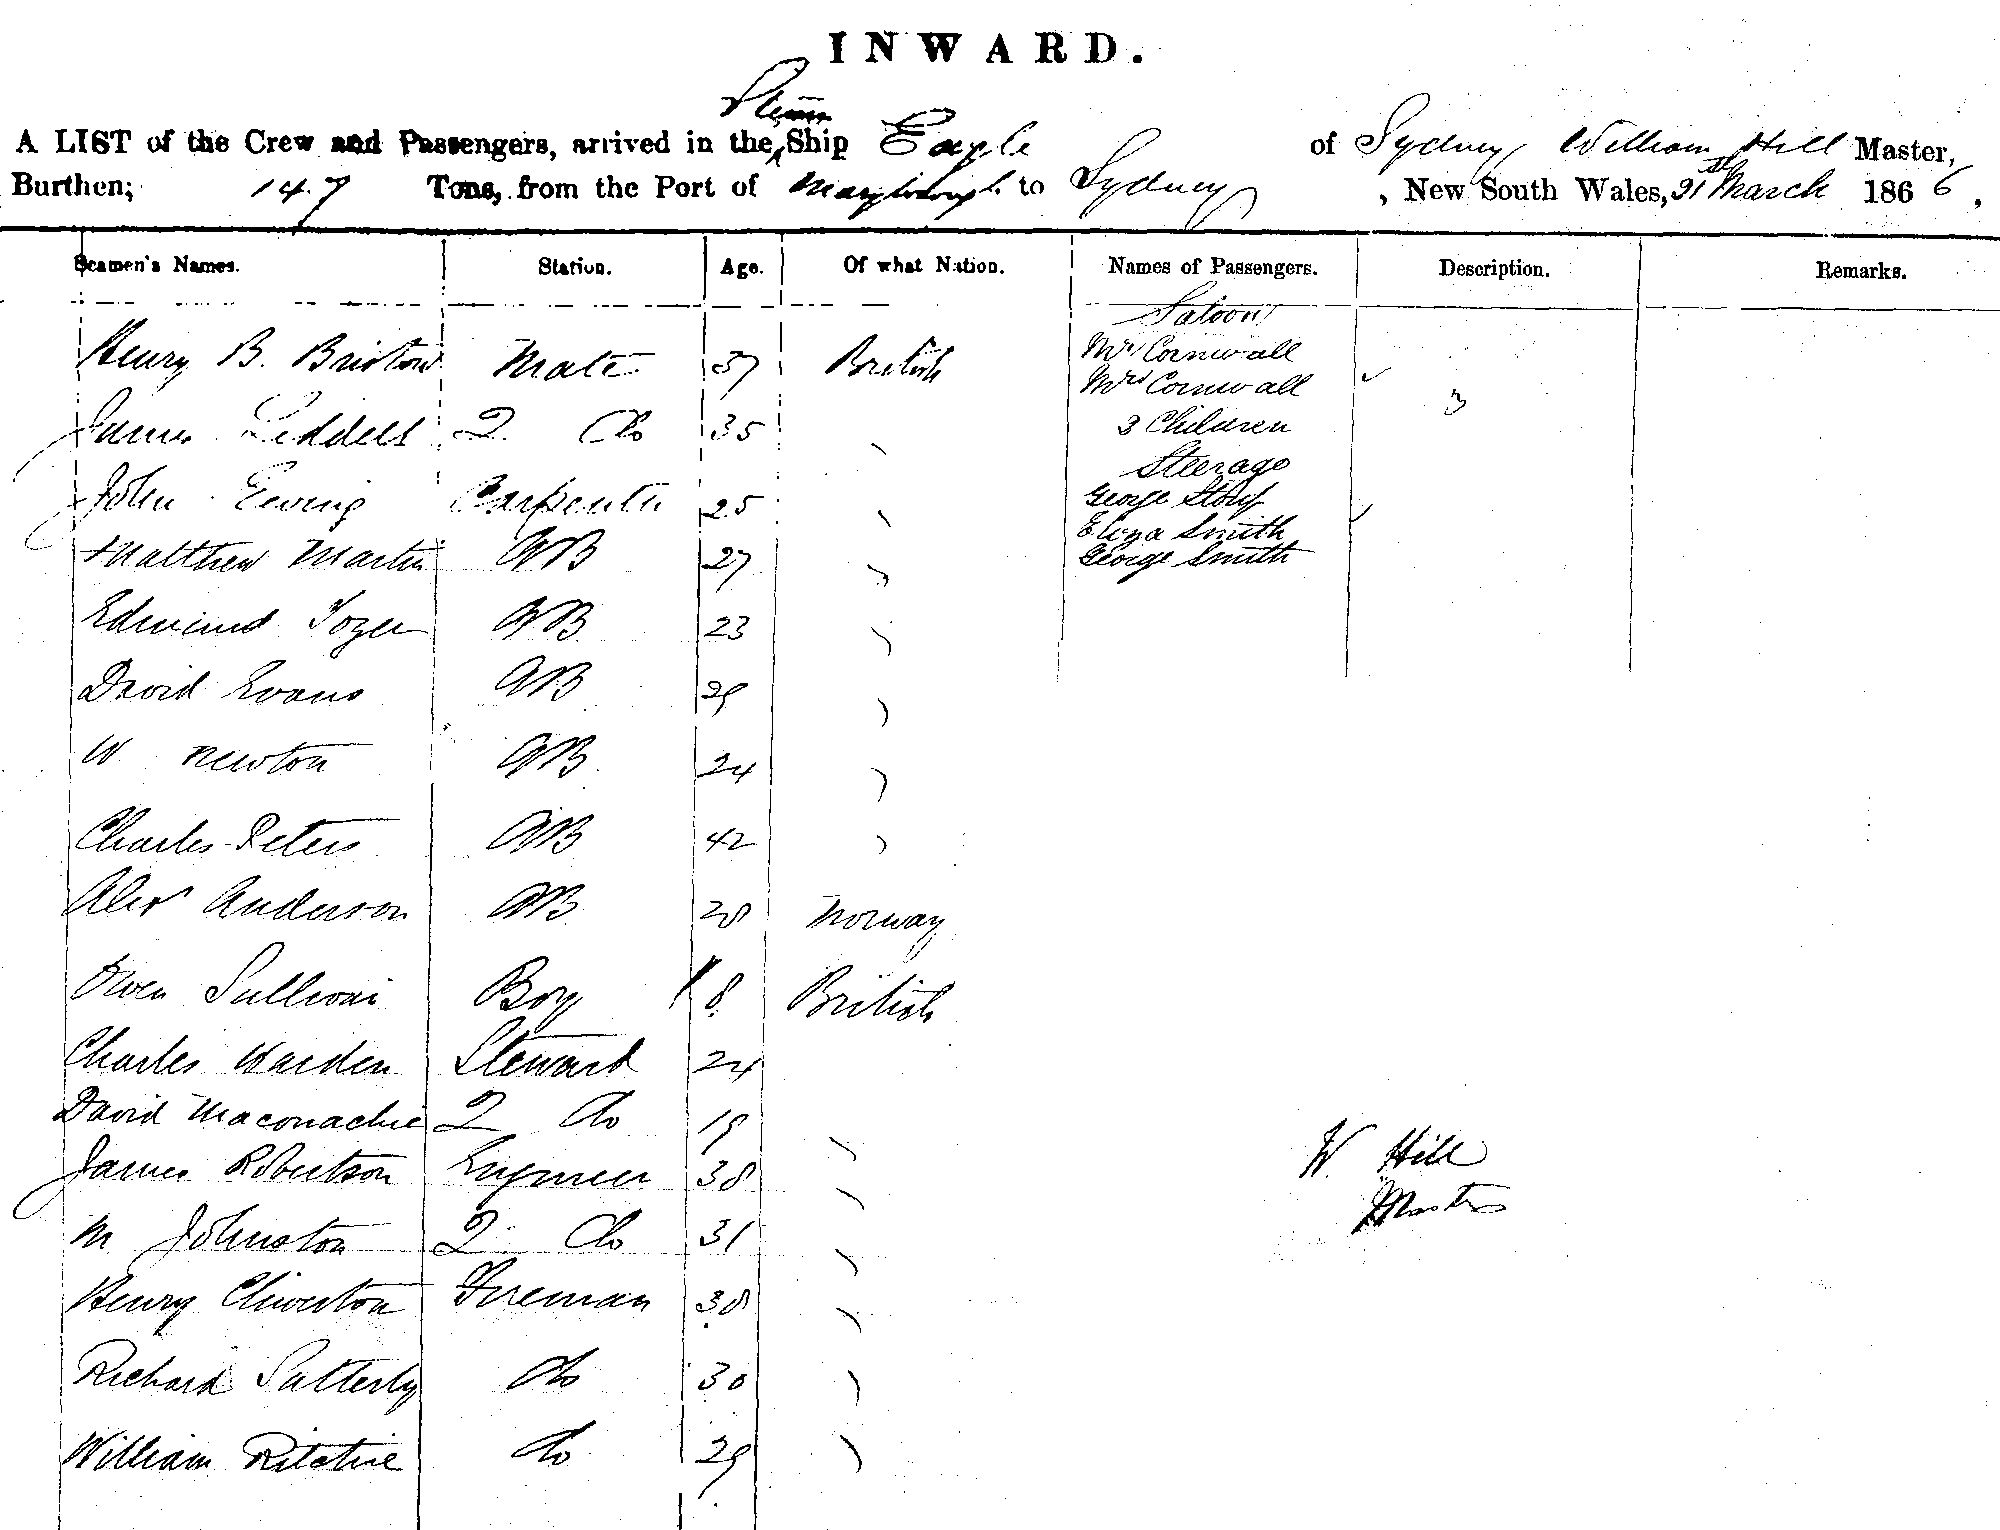 INWARD.
Steam
A LIST of the Crew and Passengers, arrived in the Ship Eagle of Sydney William Hill Master,
Burthen; 147 Tons, from the Port of Maryborough to Sydney, New South Wales, 31st March 1866,
Seamen's Names. Station. Age. Of what Nation. Names of Passengers. Description. Remarks.
Saloon
Henry B. Bristow Mate 37 British Mr Cornwall
Mrs Cornwall 3
James Liddell 2 Do 35 3 Children
Steerage
John Ewing Carpenter 25 George
Eliza Smith
Matthew Martin AB 27 George Smith
Edmund Tozer AB 23
David Evans AB 29
W Newton AB 24
Charles Peters AB 42
Alexr Anderson AB 28 Norway
Owen Sullivan Boy 18 British
Charles Warden Steward 24
David Maconachie 2 Do 19
James Robertson Engineer 38
M Johnston 2 Do 31
Henry Chiverton Fireman 38
Richard Satterly Do 30
William Ritchie Do 29
W Hill
Master